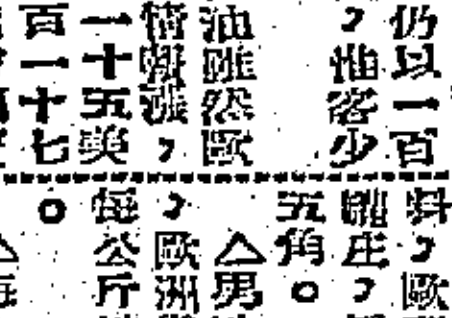 仍以一百
，惟客少
油雖然歐
情漲，
一十五美
百一十七
，歐
庄，
五角。
△男
，歐洲
每公斤
。